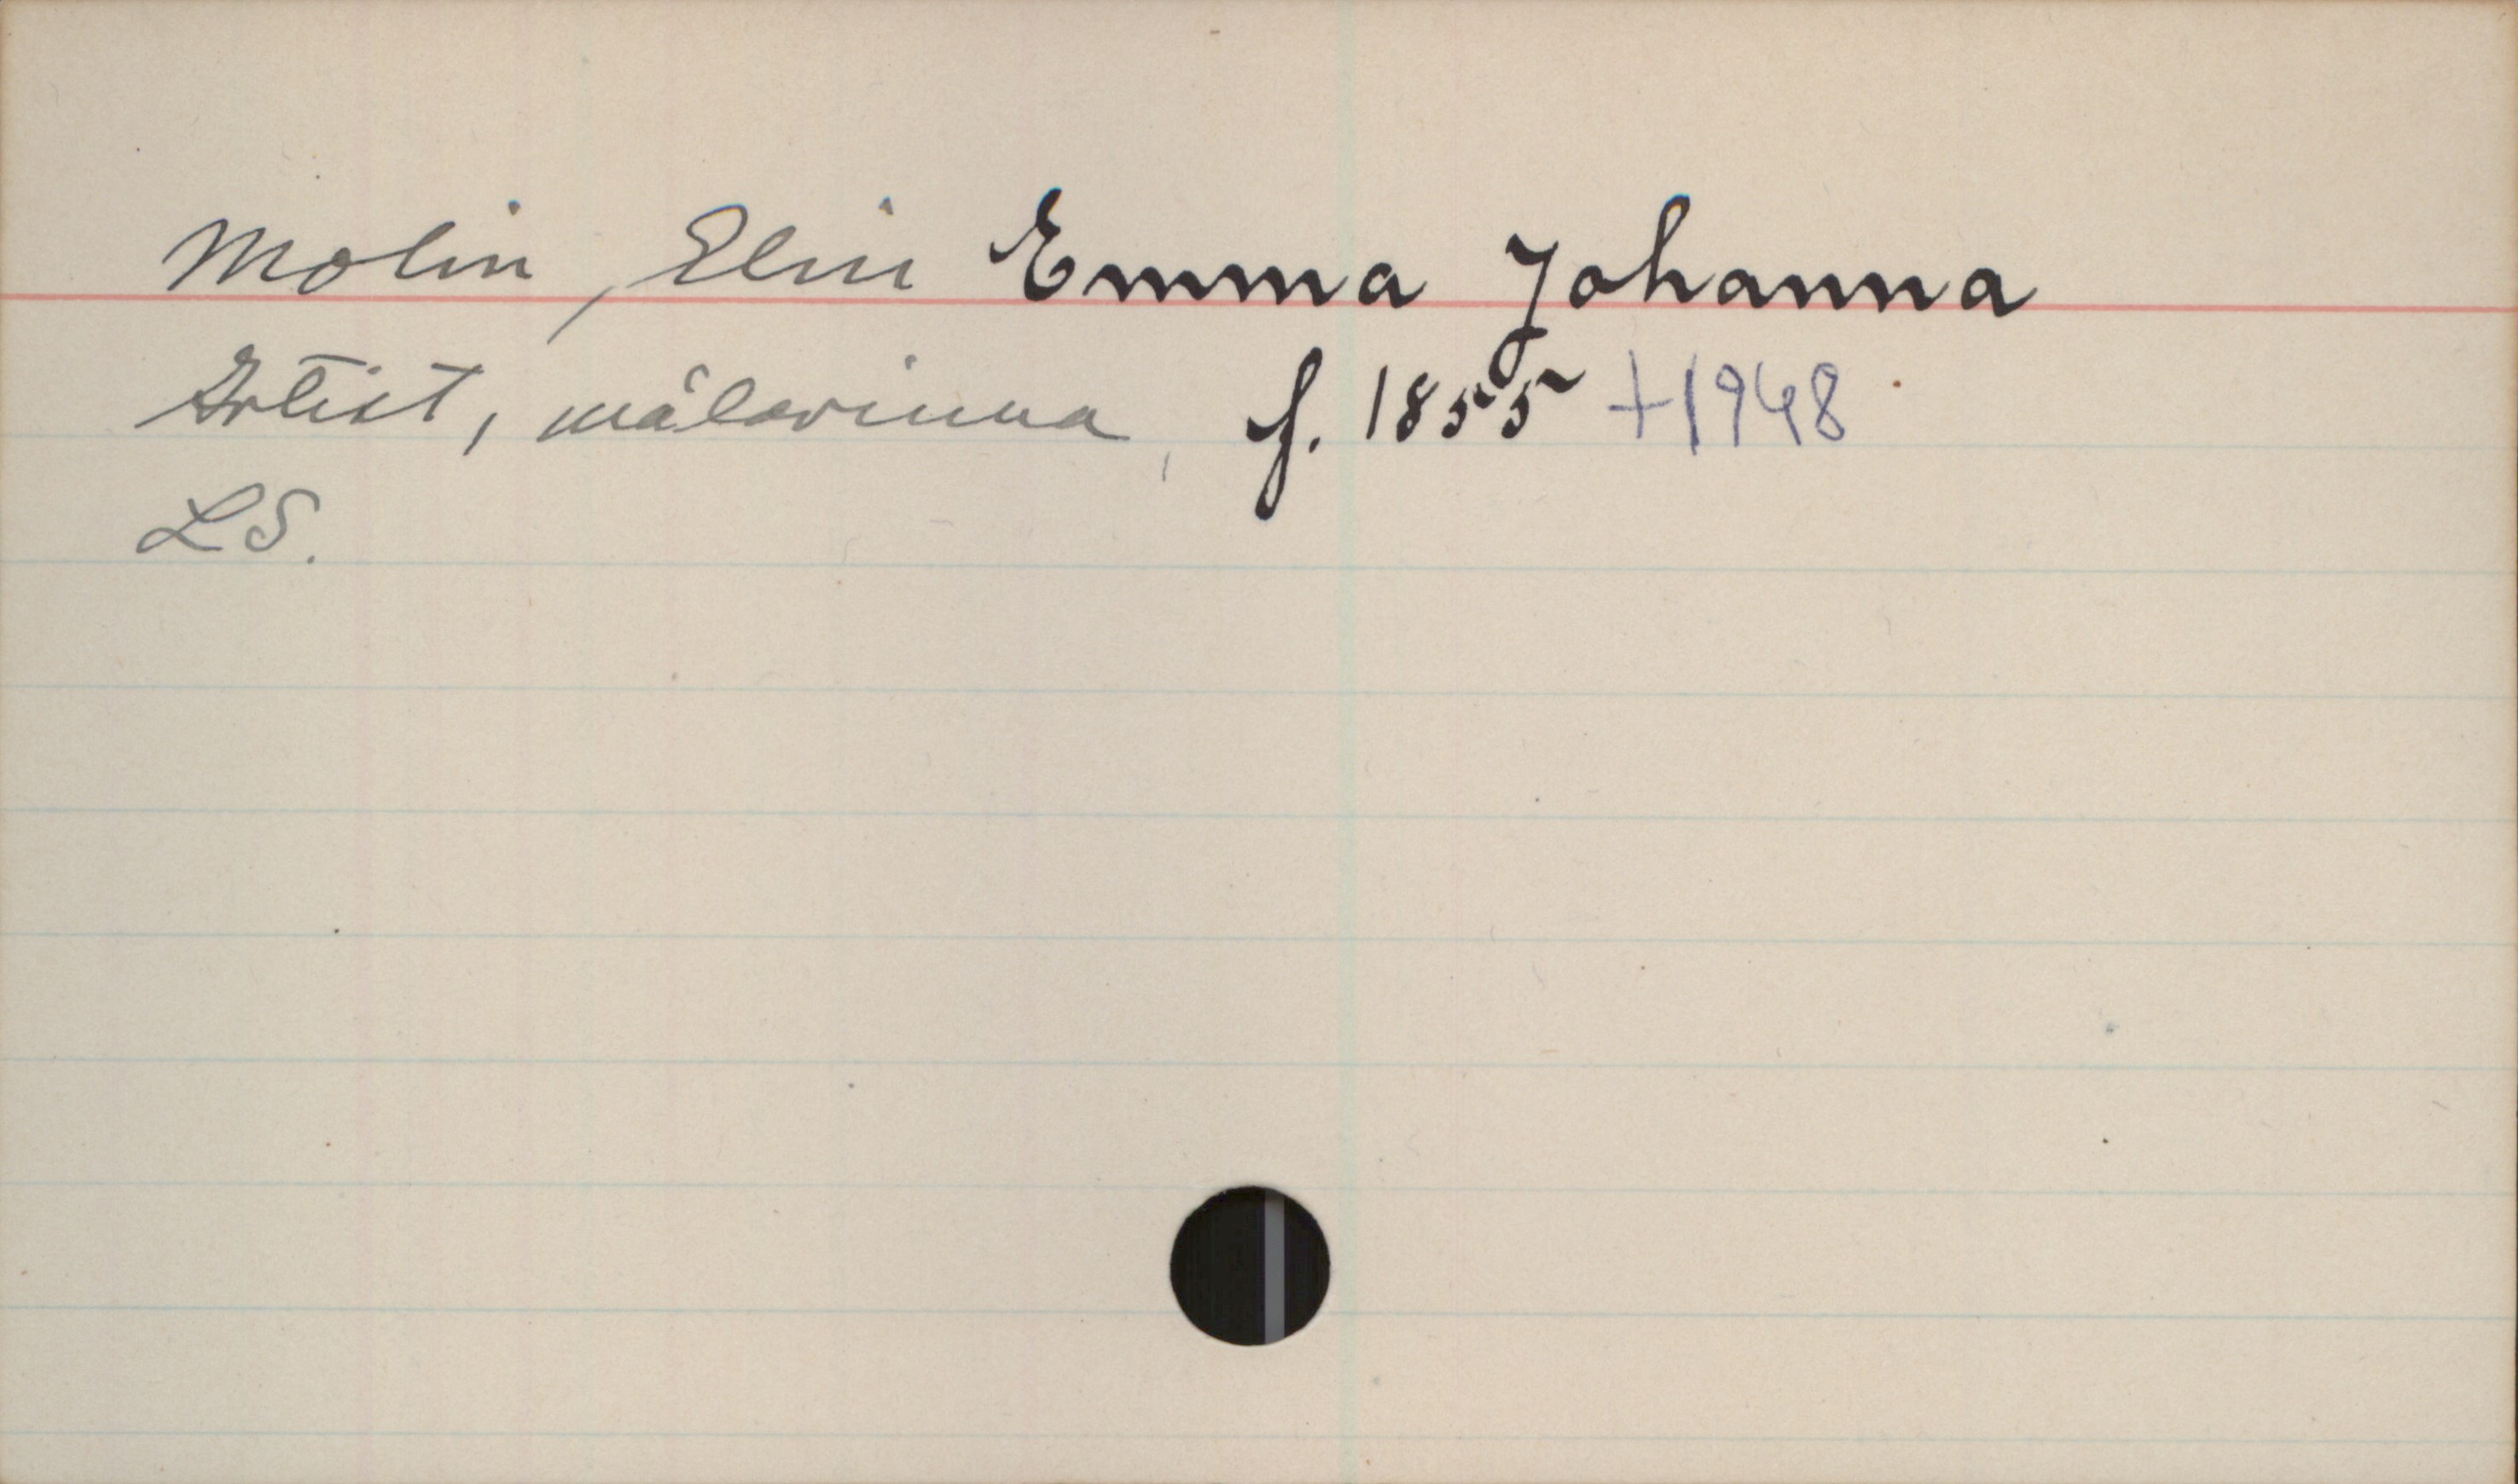 Molin, Elin Emma Johanna
Artist, målarinna, f. 1855 +1948
LS.